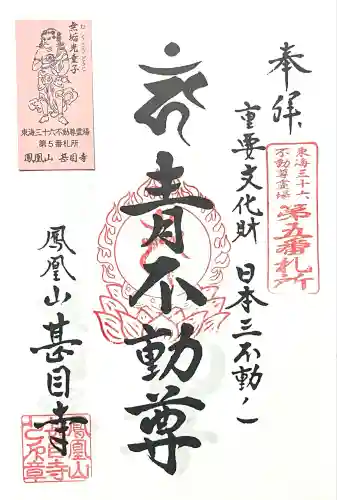 奉拝
重要文化財 日本三不動ノ一
東海三十六
不動尊霊場
第五番札所
青不動尊
鳳凰山 甚目寺
無垢光童子
むくこうどうじ
東海三十六不動尊霊場
第5番札所
鳳凰山 甚目寺